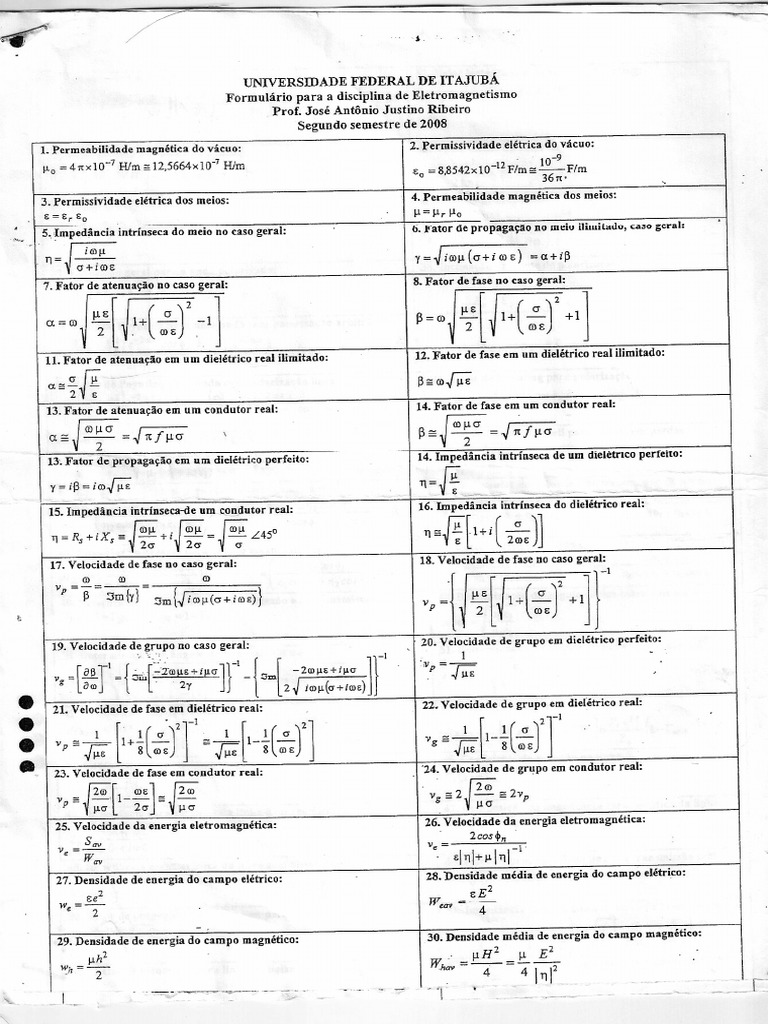 UNIVERSIDADE FEDERAL DE ITAJUBÁ
Formulário para a disciplina de Eletromagnetismo
Prof. José Antônio Justino Ribeiro
Segundo semestre de 2008
1. Permeabilidade magnética do vácuo:
μ₀ = 4π×10⁻⁷ H/m ≅ 12,5664×10⁻⁷ H/m
2. Permissividade elétrica do vácuo:
ε₀ = 8,8542×10⁻¹² F/m ≅ 10⁻⁹/36π F/m
3. Permissividade elétrica dos meios:
ε = ε_r ε₀
4. Permeabilidade magnética dos meios:
μ = μ_r μ₀
5. Impedância intrínseca do meio no caso geral:
η = √(iωμ/(σ+iωε))
6. Fator de propagação no meio ilimitado, caso geral:
γ = √(iωμ(σ+iωε)) = α+iβ
7. Fator de atenuação no caso geral:
α = ω√(με/2 [√(1+(σ/ωε)²) −1])
8. Fator de fase no caso geral:
β = ω√(με/2 [√(1+(σ/ωε)²) +1])
11. Fator de atenuação em um dielétrico real ilimitado:
α ≅ σ/2 √(μ/ε)
12. Fator de fase em um dielétrico real ilimitado:
β ≅ ω√(με)
13. Fator de atenuação em um condutor real:
α ≅ √(ωμσ/2) = √(πfμσ)
14. Fator de fase em um condutor real:
β ≅ √(ωμσ/2) = √(πfμσ)
13. Fator de propagação em um dielétrico perfeito:
γ = iβ = iω√(με)
14. Impedância intrínseca de um dielétrico perfeito:
η = √(μ/ε)
15. Impedância intrínseca de um condutor real:
η = R_s + iX_s ≅ √(ωμ/2σ) + i√(ωμ/2σ) = √(ωμ/σ) ∠45°
16. Impedância intrínseca do dielétrico real:
η ≅ √(μ/ε) [1+i(σ/2ωε)]
17. Velocidade de fase no caso geral:
v_p = ω/β = ω/ℑm{γ} = ω/ℑm{√(iωμ(σ+iωε))}
18. Velocidade de fase no caso geral:
v_p = {√(με/2 [√(1+(σ/ωε)²) +1])}⁻¹
19. Velocidade de grupo no caso geral:
v_g = [∂β/∂ω]⁻¹ = {ℑm[(−2ωμε+iμσ)/2γ]}⁻¹ − {ℑm[(−2ωμε+iμσ)/(2√(iωμ(σ+iωε)))]}⁻¹
20. Velocidade de grupo em dielétrico perfeito:
v_p = 1/√(με)
21. Velocidade de fase em dielétrico real:
v_p ≅ 1/√(με) [1+1/8(σ/ωε)²]⁻¹ ≅ 1/√(με) [1−1/8(σ/ωε)²]
22. Velocidade de grupo em dielétrico real:
v_g ≅ 1/√(με) [1−1/8(σ/ωε)²]⁻¹
23. Velocidade de fase em condutor real:
v_p ≅ √(2ω/μσ) [1−ωε/2σ] ≅ √(2ω/μσ)
24. Velocidade de grupo em condutor real:
v_g ≅ 2√(2ω/μσ) ≅ 2v_p
25. Velocidade da energia eletromagnética:
v_e = S_av/W_av
26. Velocidade da energia eletromagnética:
v_e = 2cosϕ_n/(ε|η|+μ|η|⁻¹)
27. Densidade de energia do campo elétrico:
w_e = εe²/2
28. Densidade média de energia do campo elétrico:
W_eav = εE²/4
29. Densidade de energia do campo magnético:
w_h = μh²/2
30. Densidade média de energia do campo magnético:
W_hav = μH²/4 = μ/4 E²/|η|²